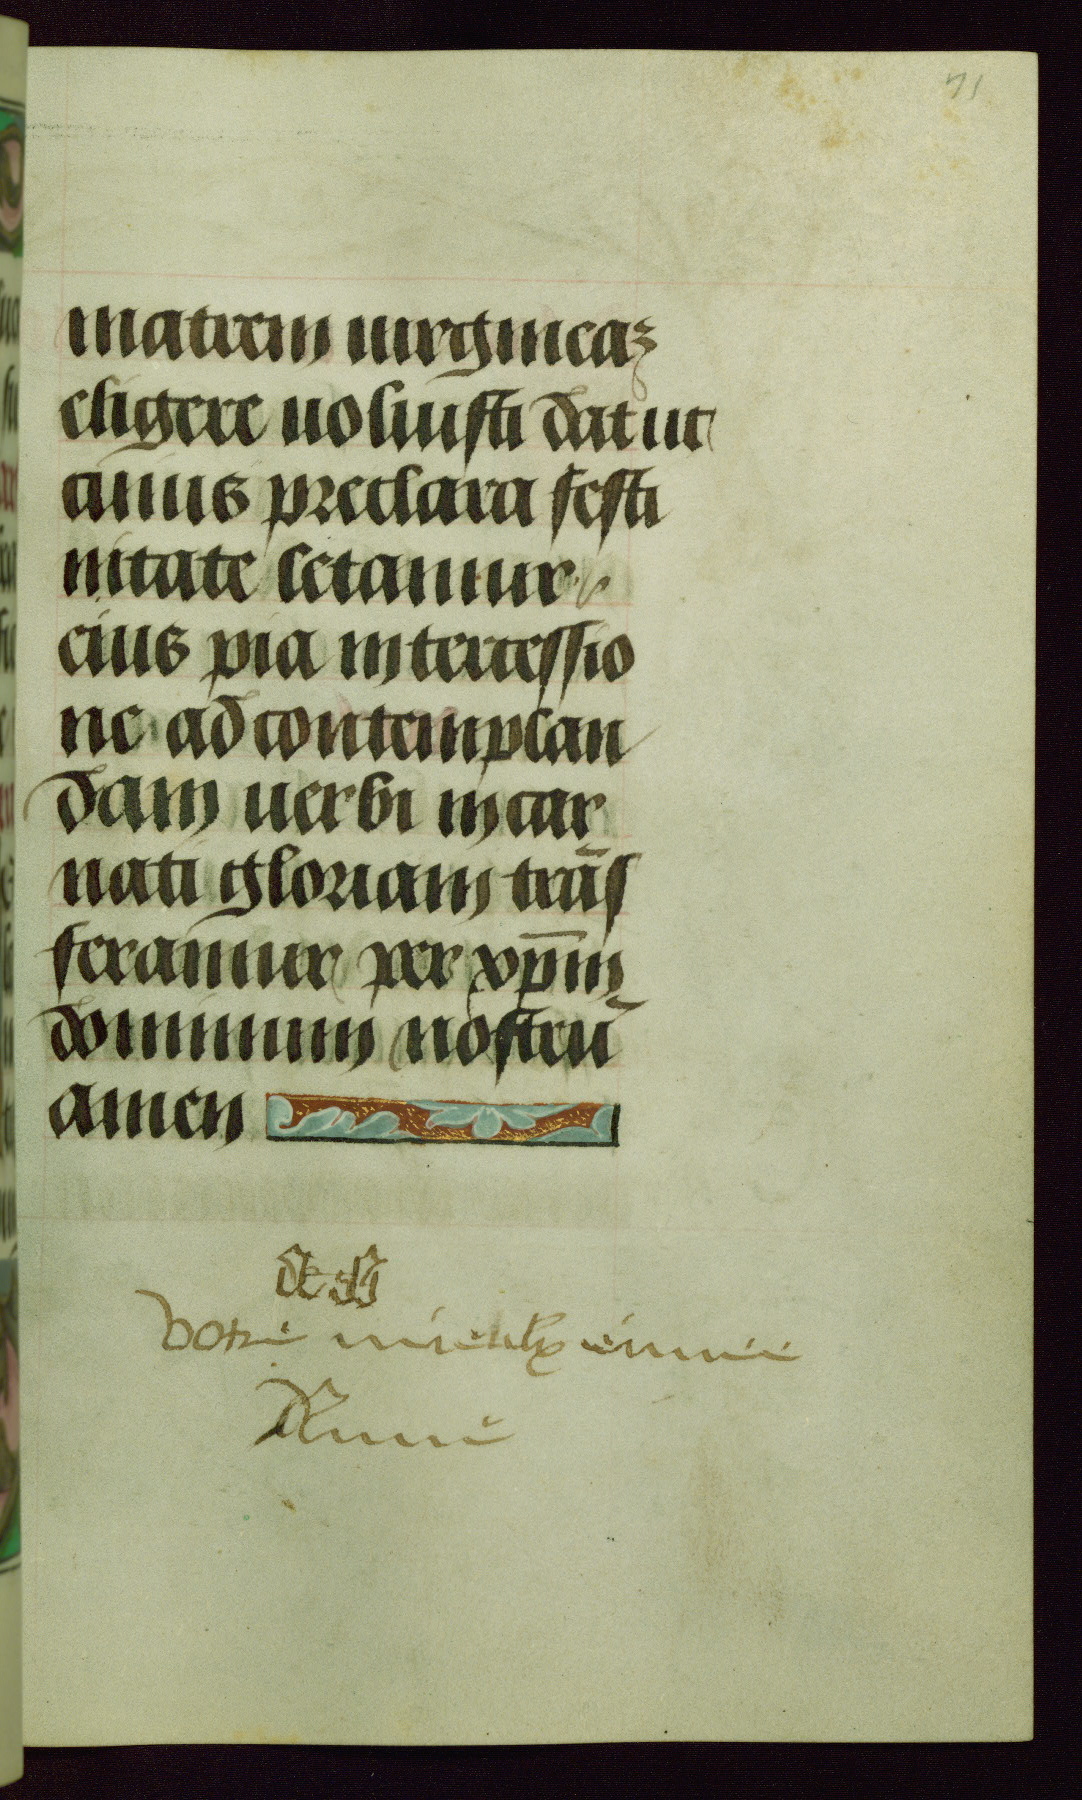 71
matrem uirgineaȝ
eligere uoluisti da ut
cuius preclara festi
uitate letamur
eius pia intercessio
ne ad contemplan
dam uerbi incar
nati gloriam trās
feramur per xp̄m
dominum nostrū
amen